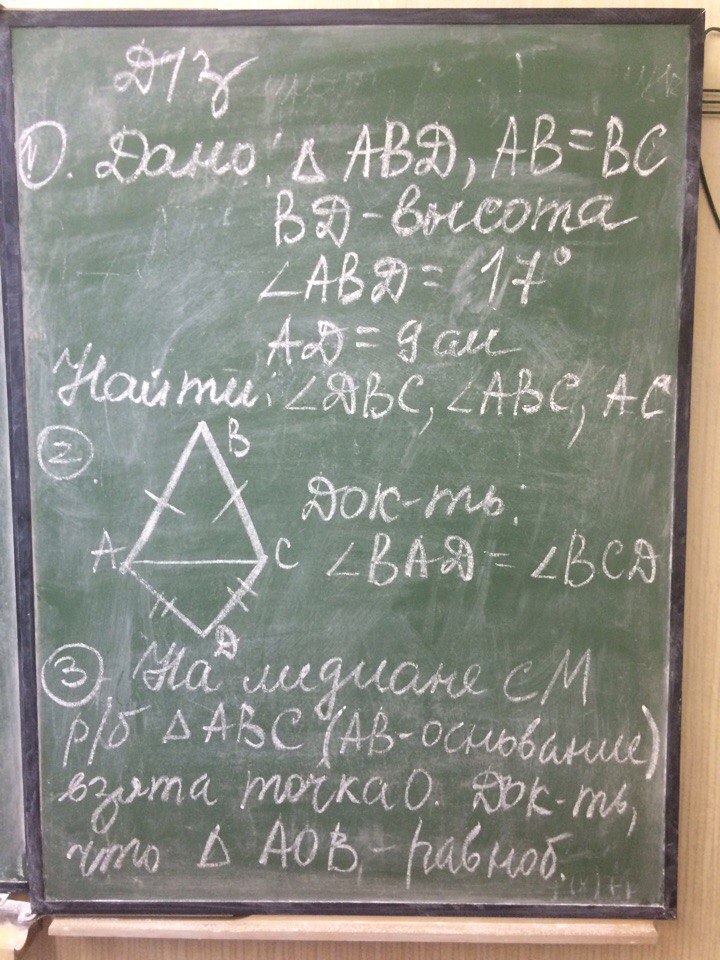 Д/З
1). Дано: Δ ABD, AB=BC
BD-высота
∠ABD= 17°
AD=9 см
Найти: ∠DBC, ∠ABC, AC
2.
B
Док-ть:
A C ∠BAD=∠BCD
D
3. На медиане CM
р/б Δ ABC (AB-основание)
взята точка O. Док-ть,
что Δ AOB - равноб.